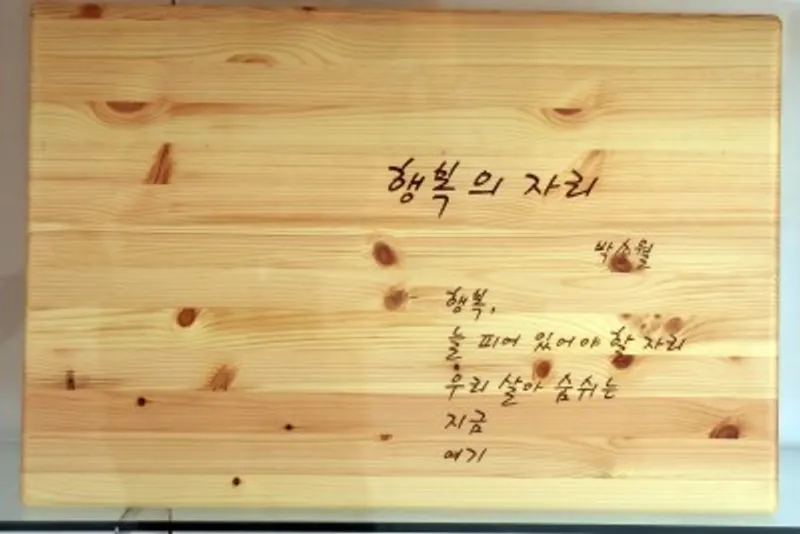 행복의 자리
박소월
행복,
늘 피어 있어야 할 자리
우리 살아 숨쉬는
지금
여기